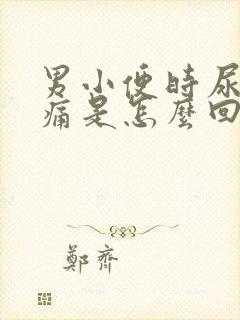 男小便時尿
痛是怎麼回
鄭齊